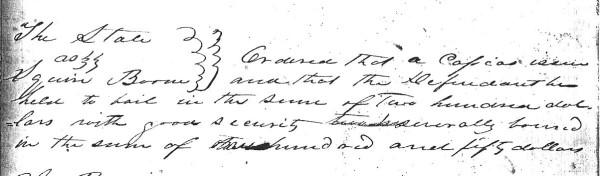 The State
agst
Squire Boone
Ordered that a Capias issue
and that the Defendant be
held to bail in the sum of Two hundred dol-
lars with good security severally bound
in the sum of hundred and fifty dollars